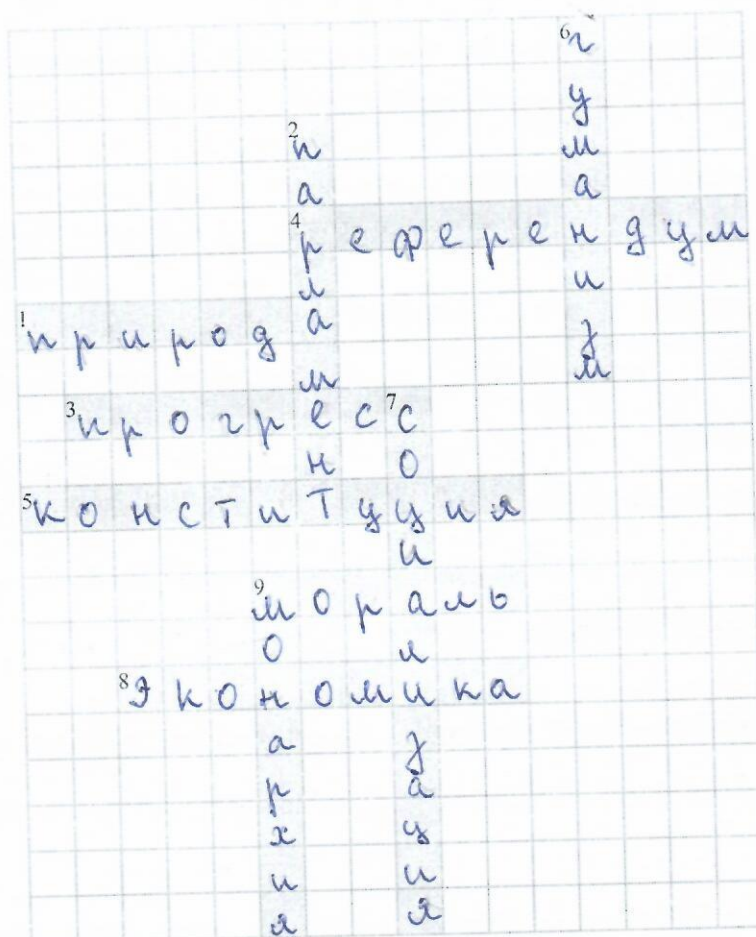 6 гуманизм
2 парламент
4 референдум
1 природа
3 прогресс
7 социализация
5 конституция
9 мораль
монархия
8 Экономика